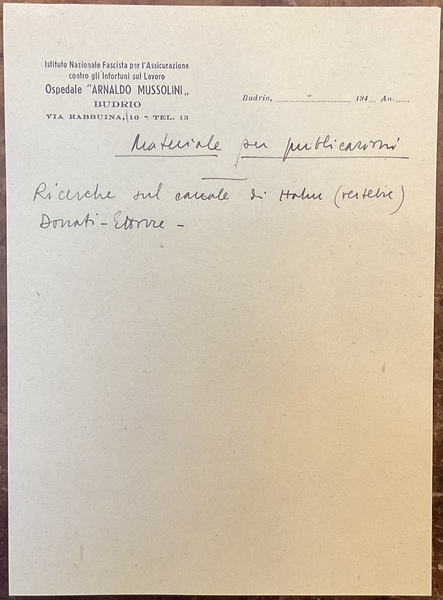 Istituto Nazionale Fascista per l'Assicurazione
contro gli Infortuni sul Lavoro
Ospedale "ARNALDO MUSSOLINI„
BUDRIO
VIA RABBUINA, 16 - TEL. 13
Budrio, 194 An.
Materiale per pubblicazioni
Ricerche sul canale di Hahn (vertebre)
Donati - Ettorre -